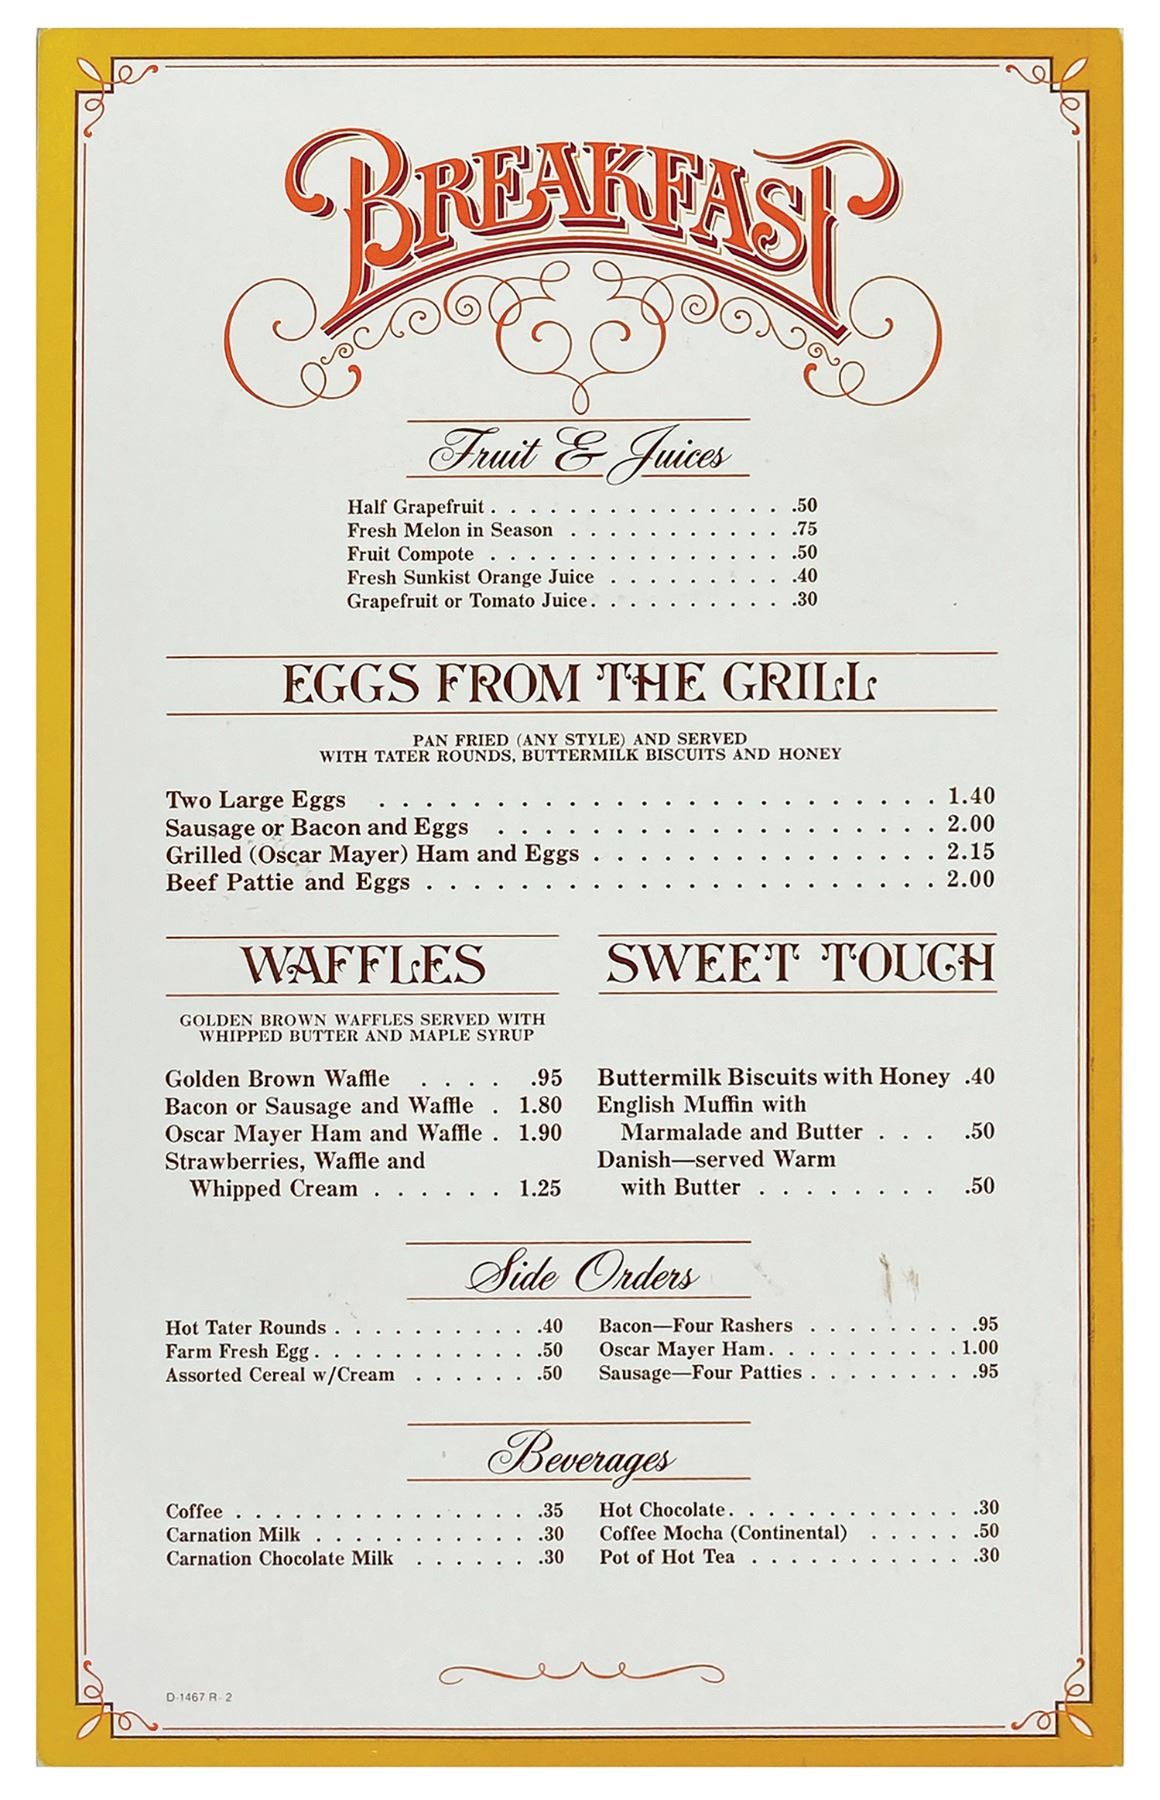 BREAKFAST
Fruit & Juices
Half Grapefruit . . . . . . . . . . . . . . . .50
Fresh Melon in Season . . . . . . . . . . . .75
Fruit Compote . . . . . . . . . . . . . . . .50
Fresh Sunkist Orange Juice . . . . . . . . . .40
Grapefruit or Tomato Juice. . . . . . . . . . .30
EGGS FROM THE GRILL
PAN FRIED (ANY STYLE) AND SERVED
WITH TATER ROUNDS, BUTTERMILK BISCUITS AND HONEY
Two Large Eggs . . . . . . . . . . . . . . . . . . . . . . . . 1.40
Sausage or Bacon and Eggs . . . . . . . . . . . . . . . . . . . 2.00
Grilled (Oscar Mayer) Ham and Eggs . . . . . . . . . . . . . . . 2.15
Beef Pattie and Eggs . . . . . . . . . . . . . . . . . . . . . . 2.00
WAFFLES
GOLDEN BROWN WAFFLES SERVED WITH
WHIPPED BUTTER AND MAPLE SYRUP
Golden Brown Waffle . . . . .95
Bacon or Sausage and Waffle . 1.80
Oscar Mayer Ham and Waffle . 1.90
Strawberries, Waffle and
Whipped Cream . . . . . . 1.25
SWEET TOUCH
Buttermilk Biscuits with Honey .40
English Muffin with
Marmalade and Butter . . . .50
Danish—served Warm
with Butter . . . . . . . . .50
Side Orders
Hot Tater Rounds . . . . . . . . . . .40
Farm Fresh Egg . . . . . . . . . . . .50
Assorted Cereal w/Cream . . . . . . .50
Bacon—Four Rashers . . . . . . . . .95
Oscar Mayer Ham. . . . . . . . . . 1.00
Sausage—Four Patties . . . . . . . . .95
Beverages
Coffee . . . . . . . . . . . . . . . .35
Carnation Milk . . . . . . . . . . . .30
Carnation Chocolate Milk . . . . . . .30
Hot Chocolate. . . . . . . . . . . . .30
Coffee Mocha (Continental) . . . . . .50
Pot of Hot Tea . . . . . . . . . . . .30
D-1467 R-2